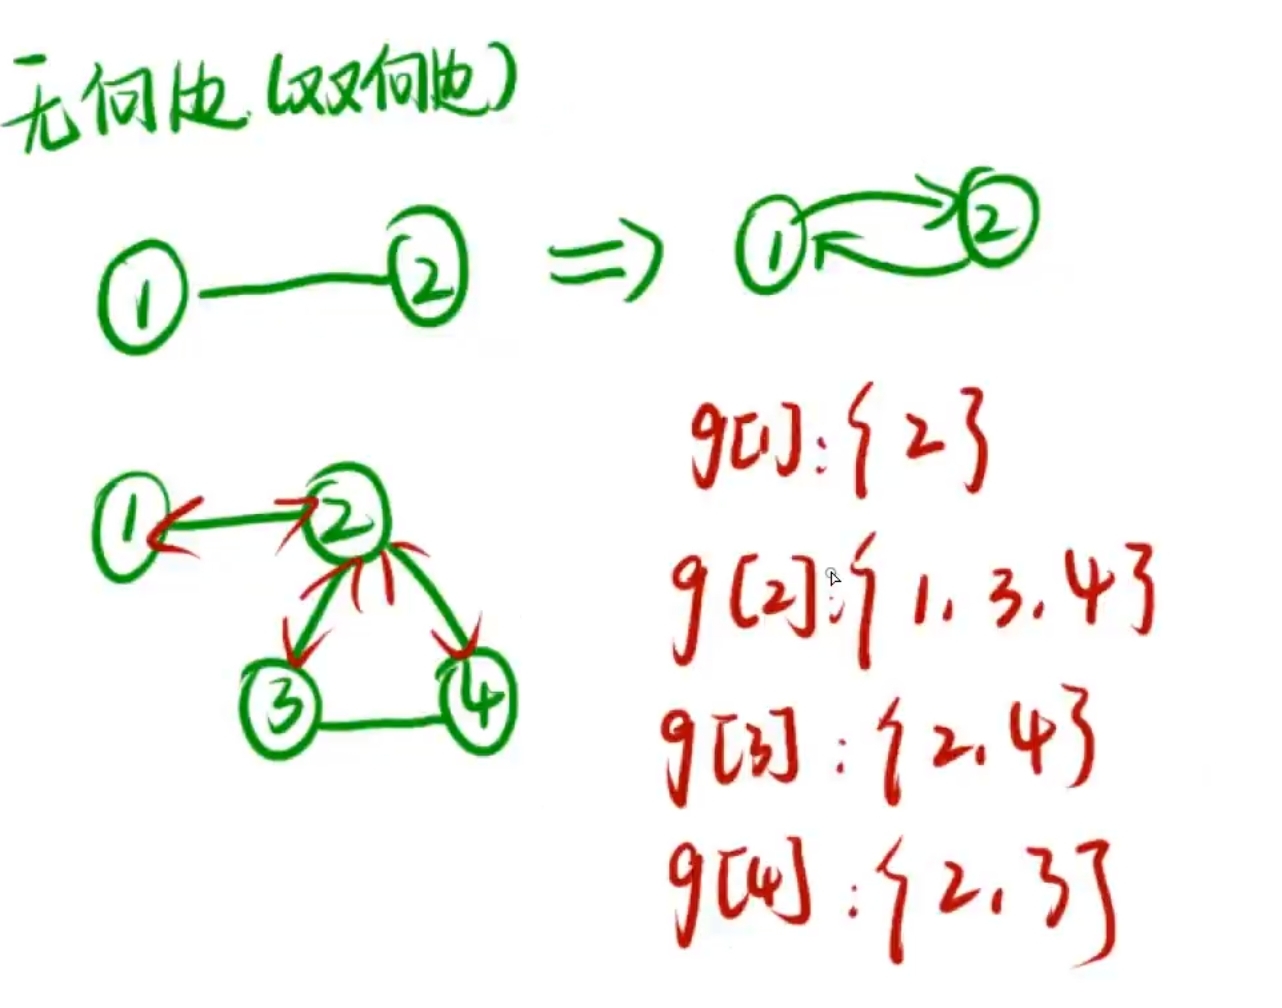 无向边(双向边)
1 2 ⇒ 1 2
g[1]:{2}
1 2
g[2]:{1,3,4}
3 4
g[3]:{2,4}
g[4]:{2,3}